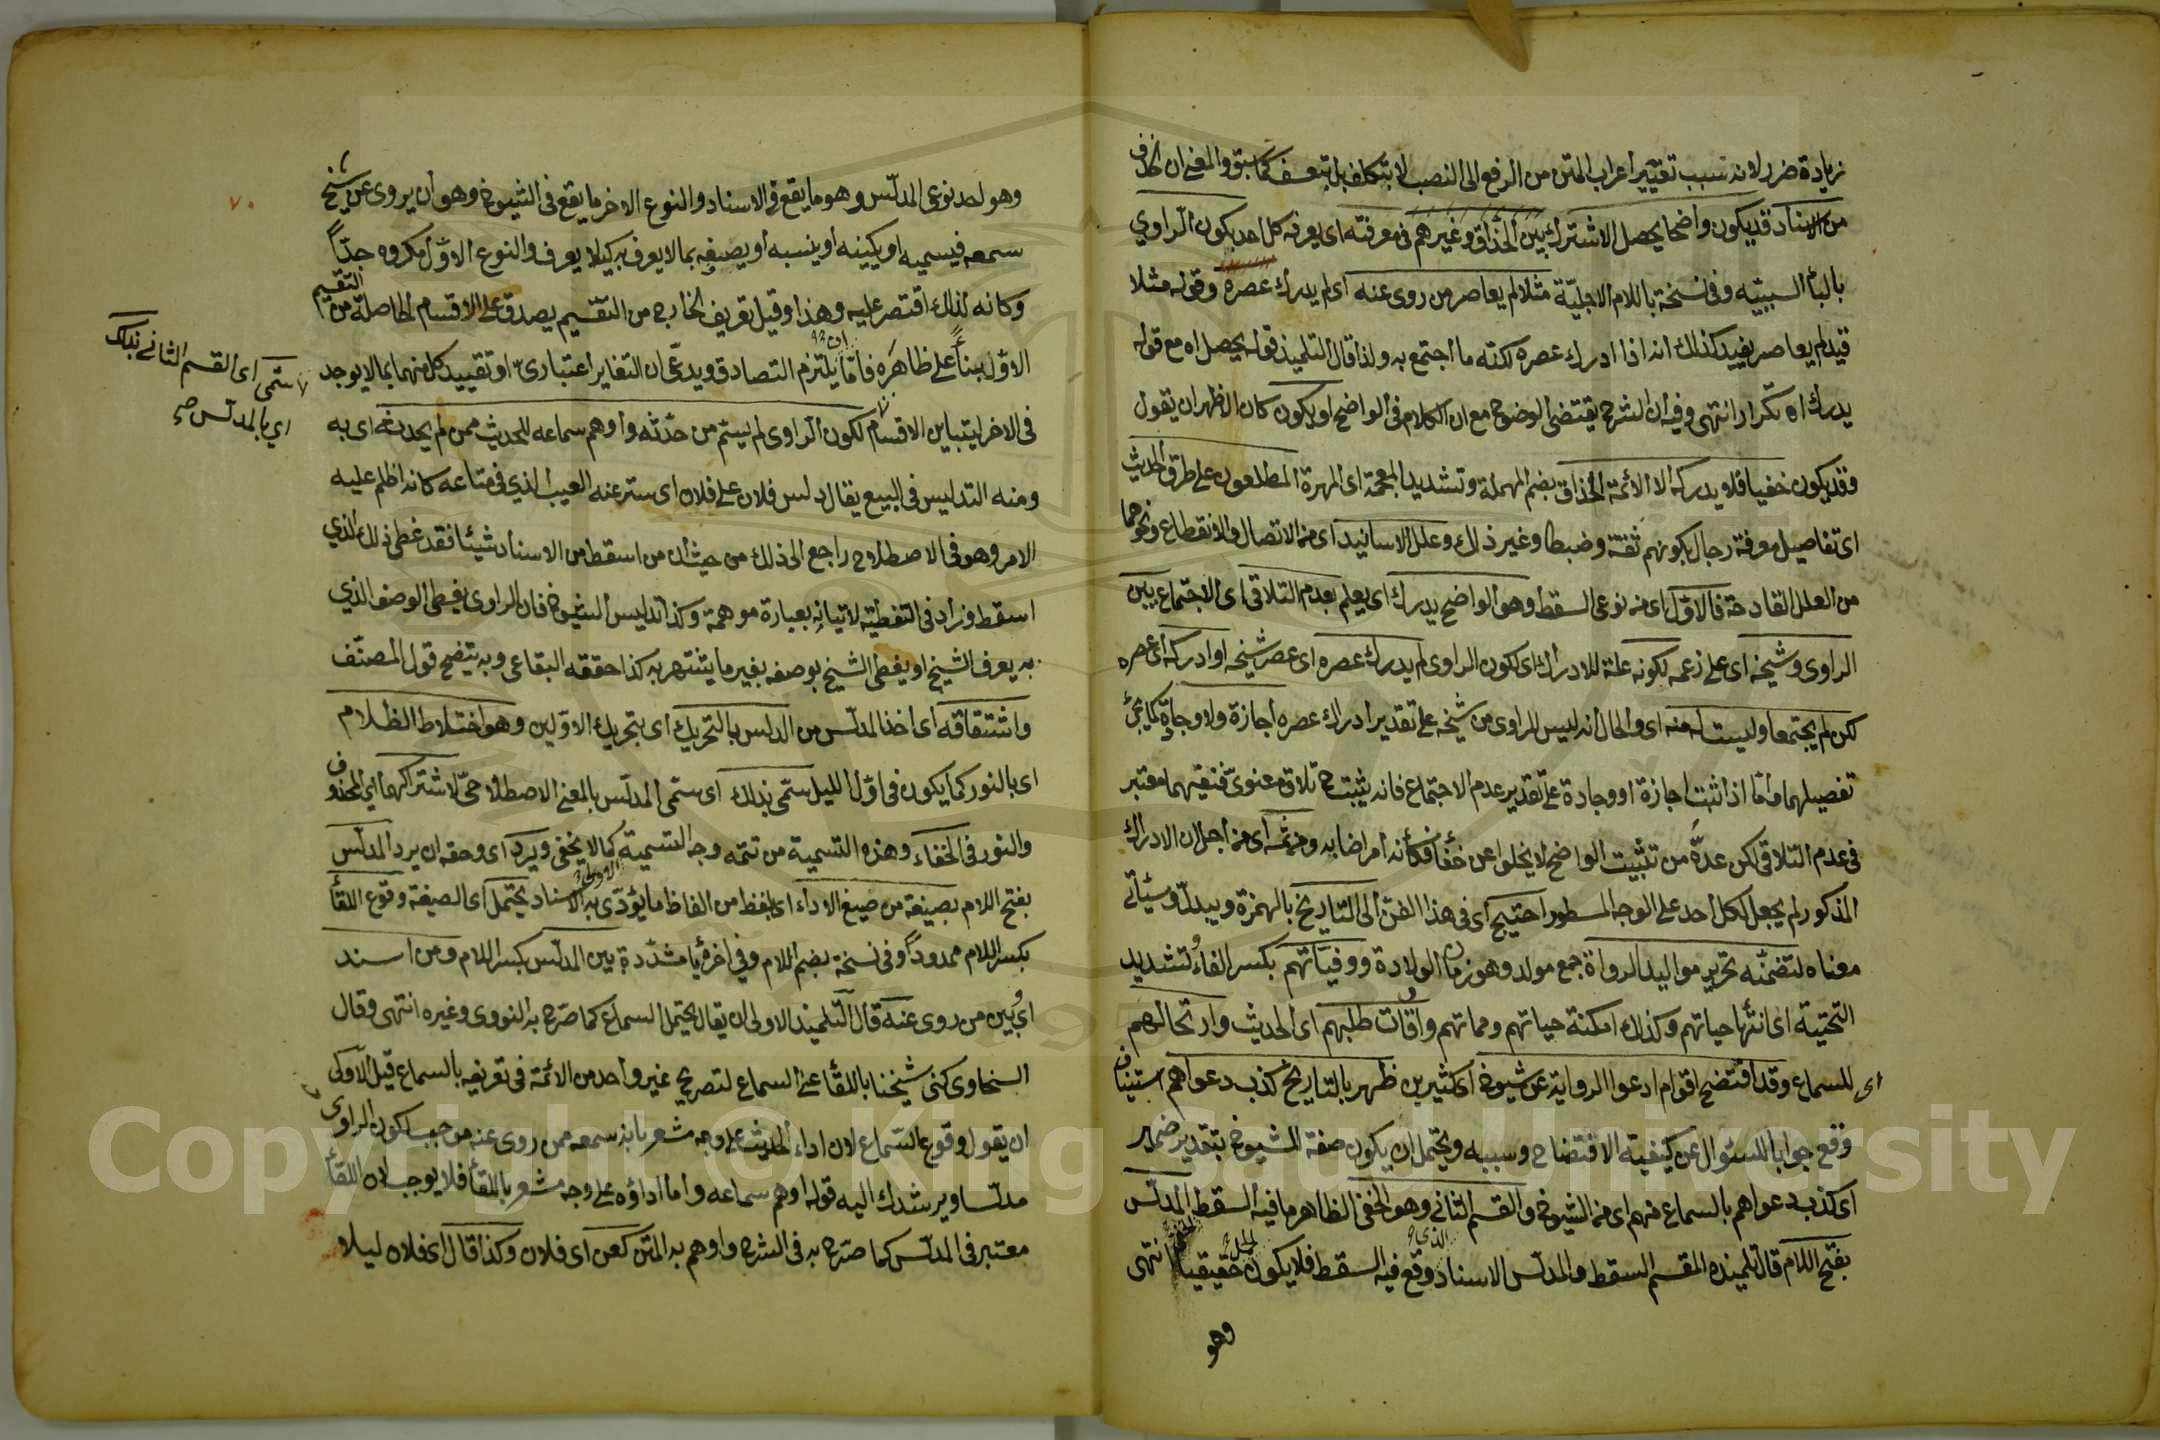 زيادة ضرر لانه تسبب تغيير اعراب المتن من الرفع الى النصب لا بتكلف بل بتعسف كما سبق والمعنى ان الحذف
من الاسناد قد يكون واضحا يحصل الاشتراك بين الحذاق وغيرهم في معرفته اى يعرفه كل احد بكون الراوي
بالباء السببية وفى نسخة باللام الاجلية مثلا لم يعاصر من روى عنه اى لم يدرك عصره وقوله مثلا
قيد لم يعاصر يفيد كذلك انه اذا ادرك عصره لكنه ما اجتمع به ولذا قال التلميذ قوله يحصل اه مع قوله
يدرك اه تكرار انتهى وفيه ان الشرح يقتضى الوضوح مع ان الكلام فى الواضح او يكون كان الاظهر ان يقول
وقد يكون خفيا فلا يدركه الا الائمة الحذاق بضم المهملة وتشديد المعجمة اى المهرة المطلعون على طرق الحديث
اى تفاصيل معرفة رجال بكونهم ثقة وضبطا وغير ذلك وعلل الاسانيد اى من الاتصال والانقطاع ونحوهما
من العلل القادحة فالاول اى من نوعى السقط وهو الواضح يدرك اى يعلم بعدم التلاقى اى الاجتماع بين
الراوى وشيخه اى على زعمه بكونه علة للادراك اى لكون الراوى لم يدرك عصره اى عصر شيخه او ادركه اى عصره
لكن لم يجتمعا وليست له منه اى والحال انه ليس للراوى من شيخه على تقدير ادراك عصره اجازة ولا وجادة كما يجئ
تفصيلهما واما اذا ثبت اجازة او وجادة على تقدير عدم الاجتماع فانه يثبت ح تلاق معنوى فنفيهما معتبر
فى عدم التلاقى لكن عده من تثبيت الواضح لا يخلوا عن خفأ فكأنه امر اضافى ومن ثمه اى من اجل ان الادراك
المذكور لم يجعل لكل احد على الوجه المسطور احتيج اى فى هذا الفن الى التاريخ بالهمزة ويبدل وسيأتى
معناه لتضمنه تحرير مواليد الرواة جمع مولد وهو زمان الولادة ووفياتهم بكسر الفاء وتشديد
التحتية اى انتهاء حياتهم وكذلك امكنة حياتهم ومماتهم واوقات طلبهم اى الحديث وارتحالهم
اى للسماع وقد افتضح اقوام ادعوا الرواية عن شيوخ اى كثيرين ظهر بالتاريخ كذب دعواهم استيناف
وقع جوابا للسئوال عن كيفية الافتضاح وسببه ويحتمل ان يكون صفة لشيوخ بتقدير ضمير
اى كذب دعواهم بالسماع منهم اى من الشيوخ والقسم الثانى وهو الخفى الظاهر ما فيه السقط المدلس
بفتح اللام قال تلميذه المقسم السقط والمدلس الاسناد الذى وقع فيه السقط فلا يكون الحمل حقيقيا انتهى
وهو
وهو احد نوعى المدلس وهو ما يقع فى الاسناد والنوع الاخر ما يقع فى الشيوخ وهو ان يروى عن شيخ
سمعه فيسميه او يكينه او ينسبه او يصفه بما لا يعرف به كيلا يعرف والنوع الاول مكروه جدًا
وكانه لذلك اقتصر عليه وهذا وقيل تعريف الخارج من التقسيم يصدق على الاقسام الحاصلة من التقسيم
الاول بناءً على ظاهره فاما ان يلتزم التصادق ويدعى ان التغاير اعتبارى او تقييد كل منهما بما لا يوجد
فى الاخر ليتباين الاقسام لكون الراوى لم يسم من حدثه واوهم سماعه للحديث ممن لم يحدثه اى به
ومنه التدليس فى البيع يقال دلس فلان على فلان اى ستر عنه العيب الذي فى متاعه كانه اظلم عليه
الامر وهو فى الاصطلاح راجع الى ذلك من حيث ان من اسقط من الاسناد شيئا فقد غطى ذلك الذي
اسقط وزاد فى التغطية لاتيانه بعبارة موهمة وكذا تدليس الشيوخ فان الراوى يغطى الوصف الذي
به يعرف الشيخ او يغطى الشيخ بوصفه بغير ما يشتهر به كذا حققه البقاعى وبه يتضح قول المصنف
واشتقاقه اى اخذ المدلس من الدلس بالتحريك اى بتحريك الاولين وهو اختلاط الظلام
اى بالنور كما يكون فى اول الليل سمى بذلك اى سمى المدلس بالمعنى الاصطلاحى لاشتراكهما اي المحذوف
والنور فى الخفاء وهذه التسمية من تتمه وجه التسمية كما لا يخفى ويرد اى وحقه ان يرد المدلس
بفتح اللام بصيغة من صيغ الاداء اى بلفظ من الفاظ ما يؤدى به الاسناد يحتمل اى الصيغة وقوع اللقأ
بكسر اللام ممدودًا وفى نسخة بضم اللام وفى اخره يا مشددة بين المدلس بكسر اللام ومن اسند
اى وبين من روى عنه قال التلميذ الاولى ان يقال يحتمل السماع كما صرح به النووى وغيره انتهى وقال
السخاوى كنى شيخنا باللقأ عن السماع لتصريح غير واحد من الائمة فى تعريفه بالسماع قيل الاولى
ان يقول وقوع السماع لان اداء الحديث على وجه مشعر بانه سمعه ممن روى عنه موجب لكون الراوى
مدلسا ويرشدك اليه قوله اوهم سماعه واما اداؤه على وجه مشعر باللقأ فلا يوجب لان اللقأ
معتبر فى المدلس كما صرح به فى الشرح واوهم به المتن كعن اى فلان وكذا قال اى فلان ليلا
٧٠
سمى اى القسم الثانى بذلك
اي بالمدلس صح
Copyright © King Saud University